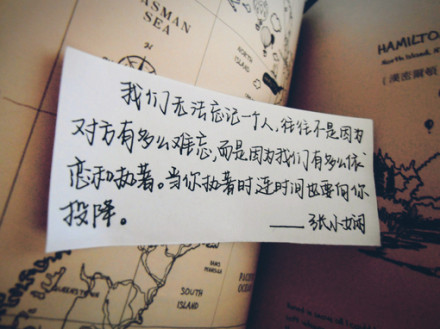 TASMAN
SEA
NORTH
ISLAND
HAMILTON
North Island,
我们无法忘记一个人,往往不是因为
对方有多么难忘,而是因为我们有多么依
恋和执著。当你执著时连时间也要向你
投降。
——张小娴
SOUTH
ISLAND
PACIFIC
OCEAN